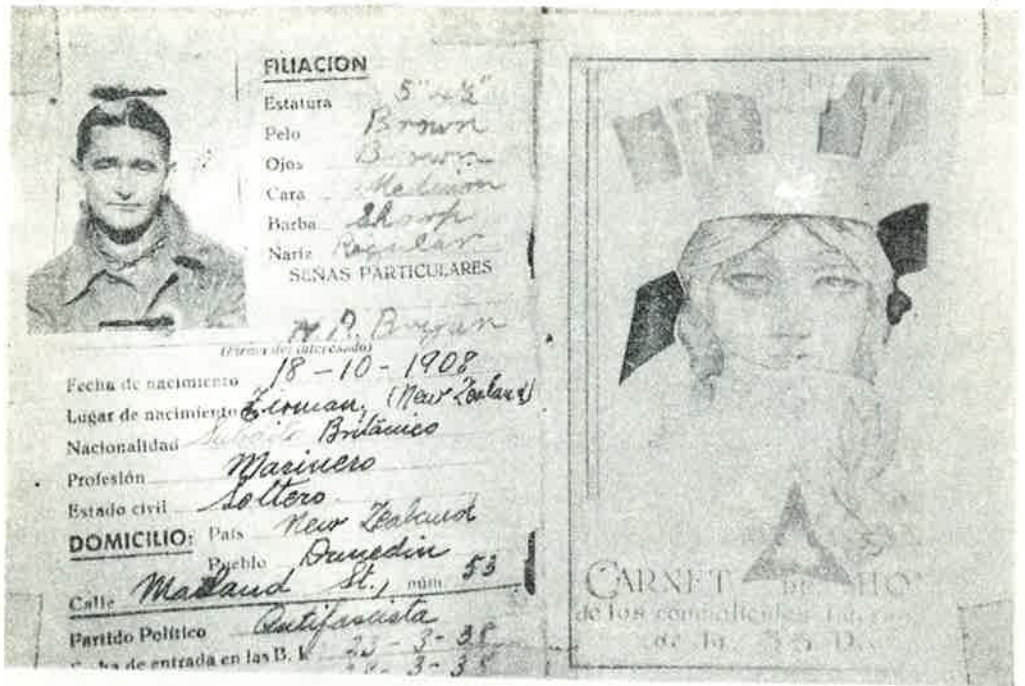 FILIACION
Estatura 5"
Pelo Brown
Ojos Brown
Cara Medium
Barba Sharp
Nariz Regular
SEÑAS PARTICULARES
(Firma del interesado)
Fecha de nacimiento 18-10-1908
Lugar de nacimiento (New Zealand)
Nacionalidad Subdito Británico
Profesión Marinero
Estado civil Soltero
DOMICILIO: País New Zealand
Pueblo Dunedin
Calle Maitland St., núm 53
Partido Político Antifascista
Fecha de entrada en las B. I. 23-3-38
3-38
CARNET DE HONOR
de los combatientes
de la